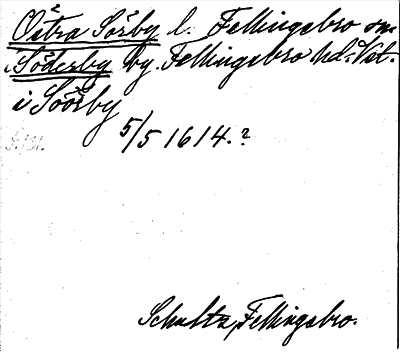 Östra Sörby l. Fellingsbro sn.
Söderby by. Fellingsbro hd. Vst.
i Söörby
5/5 1614.?
Schultz, Fellingsbro.